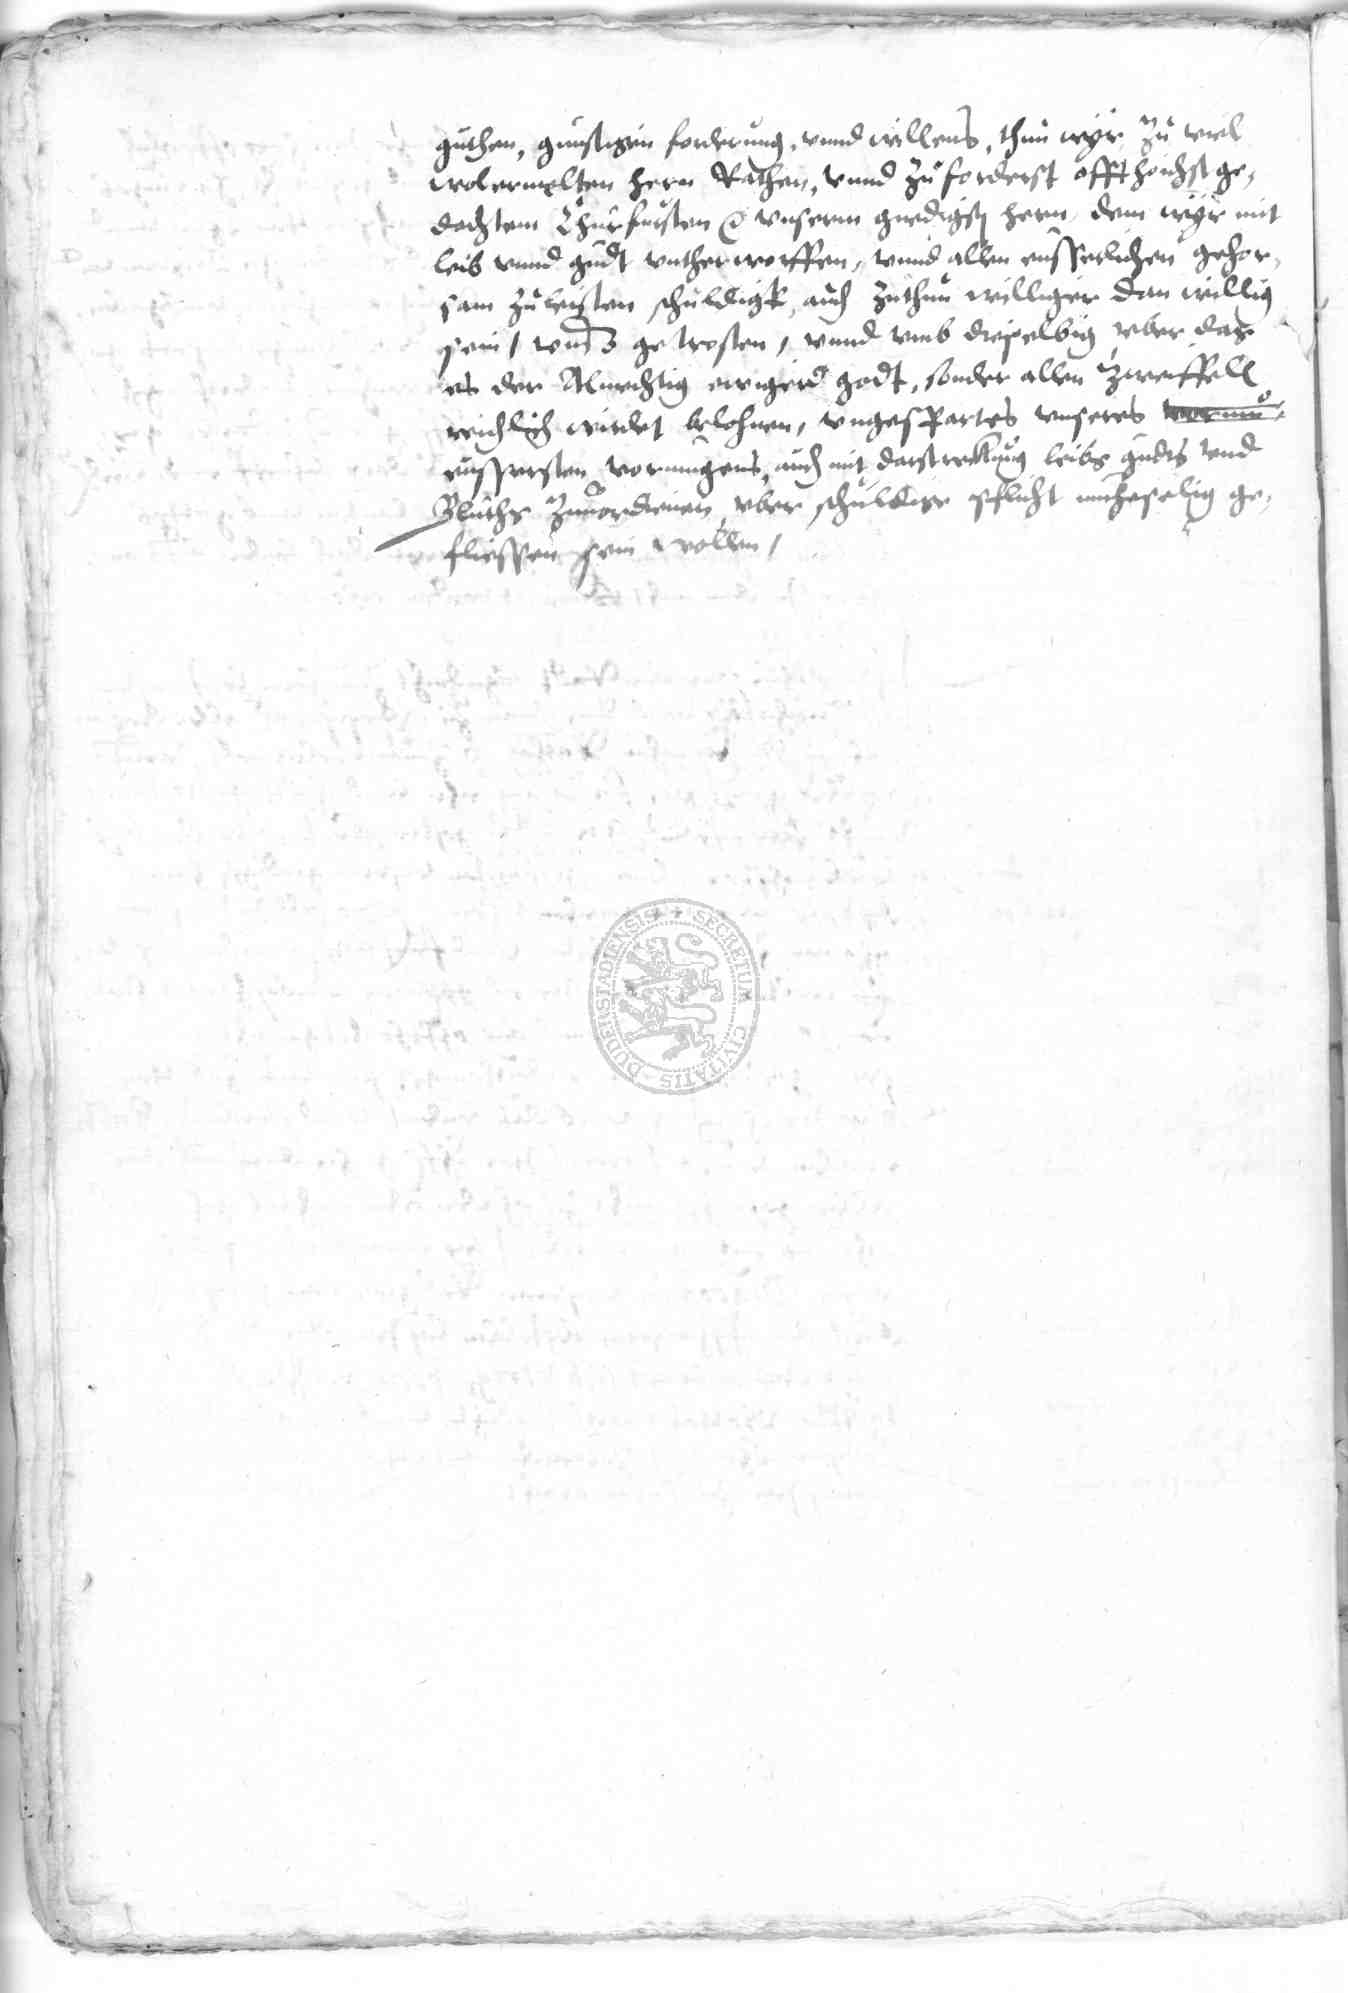 guthen, gunstigen forderung, vnnd willens, thun wyr zu viel
wolermelten hern Rathen, vnnd zuforderst offthochst ge,
dachtem Churfursten vnserm gnedigsten hern, dem wyr mit
leib vnnd gudt vntherworffen, vnnd allen eusserlichen gehor,
sam zuleisten schuldigk, auch zuthun williger dan willig
sein / vnns getrosten, vnnd vmb dieselbig vber das
es der Almechtig ewiger godt, sonder allen zweiffell
reichlich wirdet belohnen, vngespartes vnseres
eussersten vormugens, auch mit darstreckung leibs gudts vnd
Bluths zuuordienen vber schuldige pflicht muheselig ge,
fliessen sein wollen /
SECRETUM CIVITATIS DUDERSTADIENSIS